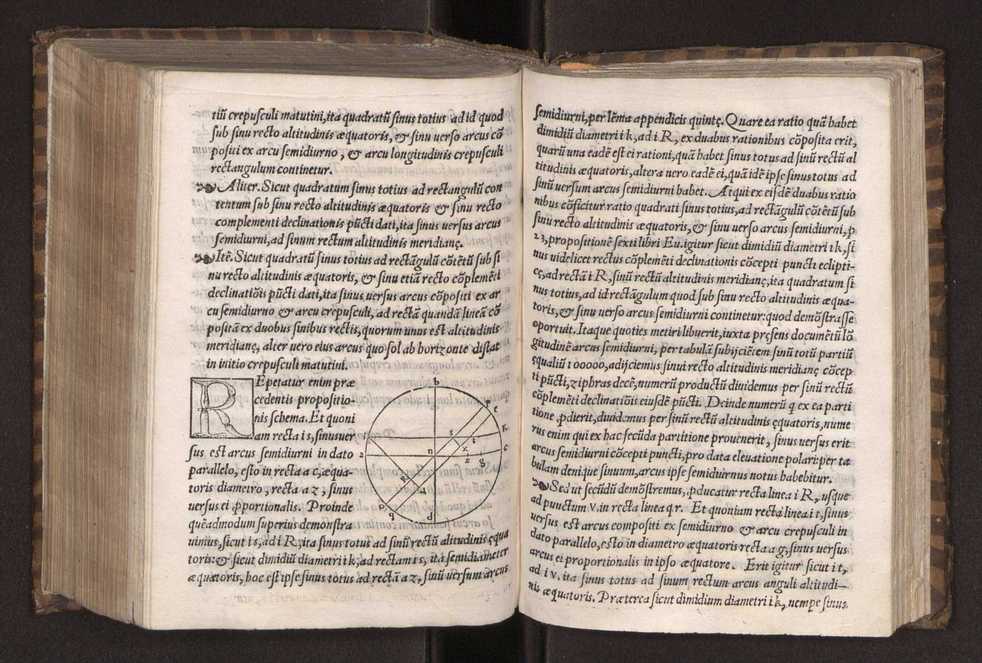 tiũ crepusculi matutini, ita quadratũ sinus totius ad id quod
sub sinu recto altitudinis æquatoris, & sinu verso arcus cõ
positi ex arcu semidiurno, & arcu longitudinis crepusculi
rectangulum continetur.
Aliter. Sicut quadratum sinus totius ad rectangulũ con
tentum sub sinu recto altitudinis æquatoris & sinu recto
complementi declinationis pũcti dati, ita sinus versus arcus
semidiurni, ad sinum rectum altitudinis meridianę.
Itẽ. Sicut quadratũ sinus totius ad rectãgulũ cõtẽtũ sub si
nu recto altitudinis æquatoris, & sinu etiã recto cõplemẽti
declinatiõis pũcti dati, ita sinus versus arcus cõpositi ex ar
cu semidiurno & arcu crepusculi, ad rectã quandã lineã cõ
positã ex duobus sinibus rectis, quorum unus est altitudinis
meridianę, alter vero eius arcus quo sol ab horizonte distat
in initio crepusculi matutini.
REpetatur enim præ
cedentis propositio-
nis schema. Et quoni
am recta i s, sinus ver
sus est arcus semidiurni in dato
parallelo, esto in recta a c, æqua-
toris diametro, recta a z, sinus
versus ei ꝓportionalis. Proinde
quẽadmodum superius demõstra
uimus, sicut i s, ad i R, ita sinus totus ad sinũ rectũ altitudinis equa
toris: & sicut dimidiũ diametri i k, ad rectam i s, ita semidiameter
æquatoris, hoc est ipse sinus totus ad rectã a z, sinũ versum arcus
b
e
k
c
g
n
s
z
d
semidiurni, per lẽma appendicis quintę. Quare ea ratio quã habet
dimidiũ diametri i k, ad i R, ex duabus rationibus cõposita erit,
quarũ una eadẽ est ei rationi, quã habet sinus totus ad sinũ rectũ al
titudinis æquatoris, altera vero eadẽ ei, quã idẽ ipse sinus totus ad
sinũ versum arcus semidiurni habet. At qui ex eisdẽ duabus ratio
nibus cõficitur ratio quadrati sinus totius, ad rectãgulũ cõtẽtũ sub
sinu recto altitudinis æquatoris, & sinu verso arcus semidiurni, ꝑ
23, propositionẽ sexti libri Eu. igitur sicut dimidiũ diametri i k, si
nus videlicet rectus cõplemẽti declinationis cõcepti puncti eclipti-
cę, ad rectã i R, sinũ rectũ altitudinis meridianę, ita quadratum si
nus totius, ad id rectãgulum quod sub sinu recto altitudinis æqua-
toris, & sinu verso arcus semidiurni continetur: quod demõstrasse
oportuit. Itaque quoties metiri libuerit, iuxta pręsens documẽtũ lõ
gitudinẽ arcus semidiurni, per tabulã subijciẽtem sinũ totũ partiũ
ęqualiũ 100000, adijciemus sinui recto altitudinis meridianę cõcep
ti pũcti, ziphras decẽ, numerũ productũ diuidemus per sinũ rectũ
cõplemẽti declinatiõis eiusdẽ pũcti. Deinde numerũ q̃ ex ea parti
tione, ꝓdierit, diuidemus per sinũ rectũ altitudinis equatoris, nume
rus enim qui ex hac secũda partitione prouenerit, sinus versus erit
arcus semidiurni cõcepti puncti, pro data eleuatione polari: per ta
bulam denique sinuum, arcus ipse semidiurnus notus habebitur.
Sed ut secũdũ demõstremus, ꝓducatur recta linea i R, usque
ad punctum v. in recta linea q r. Et quoniam recta linea i t, sinus
versus est arcus compositi ex semidiurno & arcu crepusculi in
dato parallelo, esto in diametro æquatoris recta a g, sinus versus
arcus ei proportionalis in ipso æquatore. Erit igitur sicut i t,
ad i v, ita sinus totus ad sinum rectum arcus anguli altitudi-
nis æquatoris. Præterea sicut dimidium diametri i k, nempe sinus